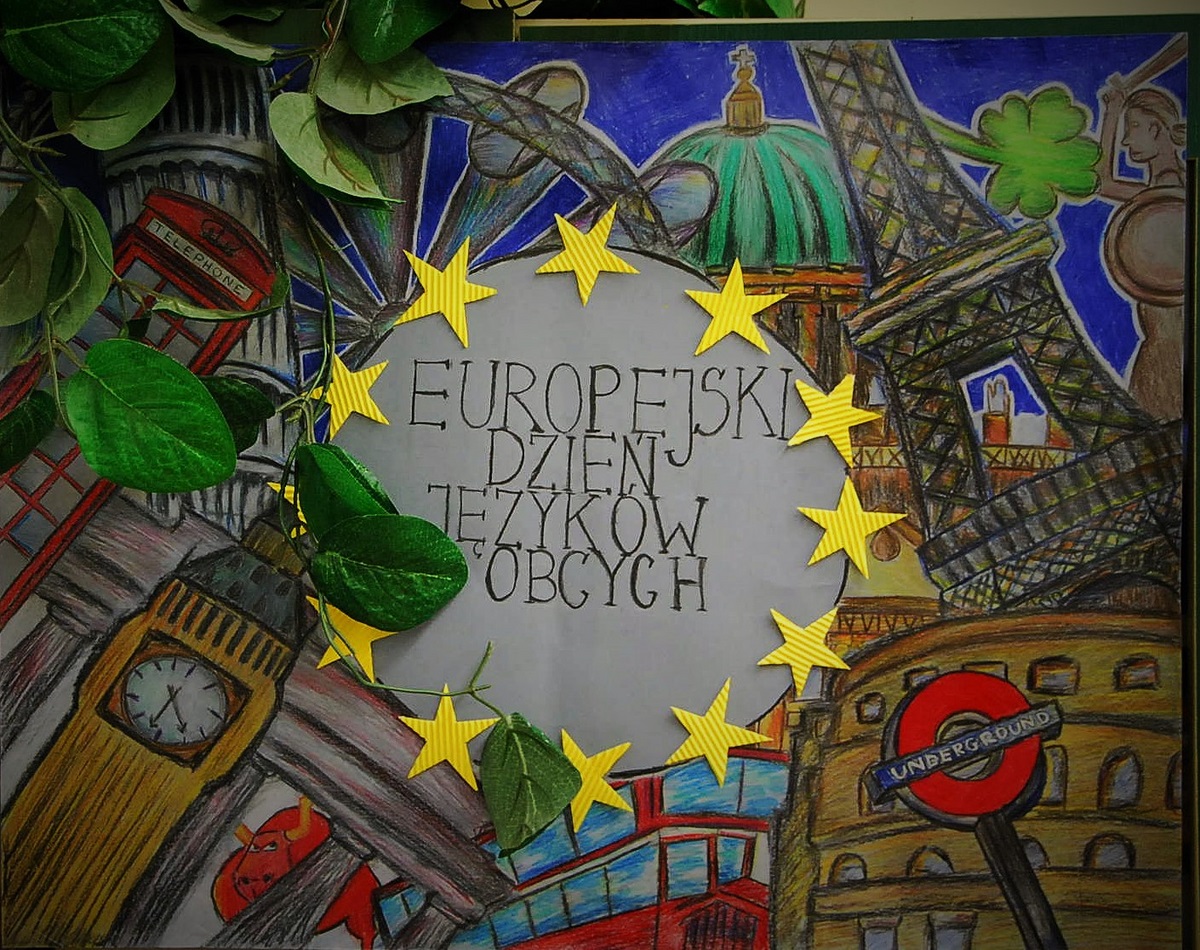 TELEPHONE
EUROPEJSKI
DZIEŃ
JĘZYKÓW
OBCYCH
UNBERGROUND